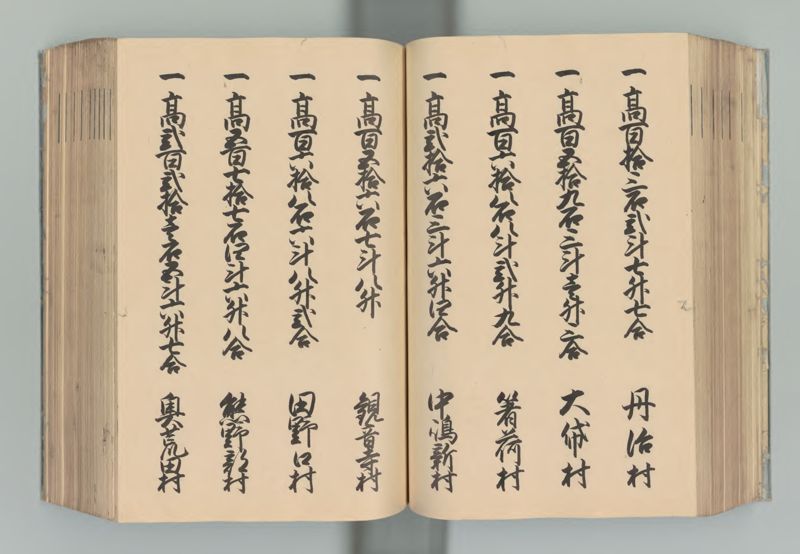 一高百拾三石弐斗七升七合 丹治村
一高百五拾九石三斗壱升三合 大俵村
一高百六拾八石八斗弐升九合 箸荷村
一高弐拾六石三斗六升四合 中嶋新村
一高百五拾六石七斗八升 観音寺村
一高百六拾八石六斗八升弐合 田野口村
一高五百七拾七石四斗六升八合 熊野部村
一高弐百弐拾壱石五斗六升七合 奥荒田村